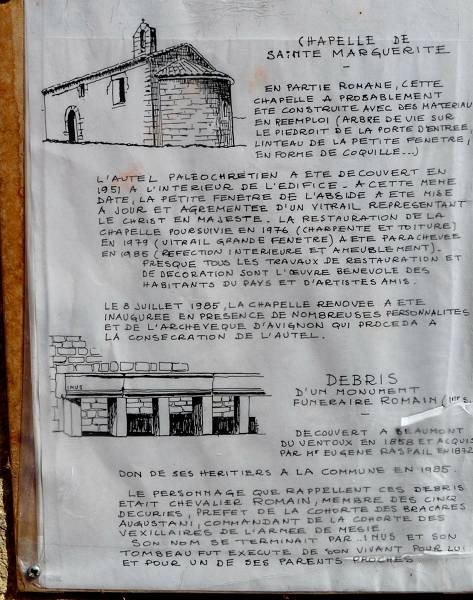 CHAPELLE DE
SAINTE MARGUERITE
EN PARTIE ROMANE, CETTE
CHAPELLE A PROBABLEMENT
ETE CONSTRUITE AVEC DES MATERIAU
EN REEMPLOI (ARBRE DE VIE SUR
LE PIEDROIT DE LA PORTE D'ENTREE,
LINTEAU DE LA PETITE FENETRE,
EN FORME DE COQUILLE...)
L'AUTEL PALEOCHRETIEN A ETE DECOUVERT EN
1951 A L'INTERIEUR DE L'EDIFICE. A CETTE MEME
DATE, LA PETITE FENETRE DE L'ABSIDE A ETE MISE
A JOUR ET AGREMENTEE D'UN VITRAIL REPRESENTANT
LE CHRIST EN MAJESTE. LA RESTAURATION DE LA
CHAPELLE POURSUIVIE EN 1976 (CHARPENTE ET TOITURE)
EN 1979 (VITRAIL GRANDE FENETRE) A ETE PARACHEVEE
EN 1985 (REFECTION INTERIEURE ET AMEUBLEMENT).
PRESQUE TOUS LES TRAVAUX DE RESTAURATION ET
DE DECORATION SONT L'ŒUVRE BENEVOLE DES
HABITANTS DU PAYS ET D'ARTISTES AMIS.
LE 8 JUILLET 1985, LA CHAPELLE RENOVEE A ETE
INAUGUREE EN PRESENCE DE NOMBREUSES PERSONNALITES
ET DE L'ARCHEVEQUE D'AVIGNON QUI PROCEDA A
LA CONSECRATION DE L'AUTEL.
INUS
DEBRIS
D'UN MONUMENT
FUNERAIRE ROMAIN
DECOUVERT A BEAUMONT
DU VENTOUX EN 1858 ET ACQUIS
PAR Mr EUGENE RASPAIL EN 1872
DON DE SES HERITIERS A LA COMMUNE EN 1985.
LE PERSONNAGE QUE RAPPELLENT CES DEBRIS
ETAIT CHEVALIER ROMAIN, MEMBRE DES CINQ
DECURIES, PREFET DE LA COHORTE DES BRACARES
AUGUSTANI, COMMANDANT DE LA COHORTE DES
VEXILLAIRES DE L'ARMEE DE MESIE.
SON NOM SE TERMINAIT PAR ..INUS ET SON
TOMBEAU FUT EXECUTE DE SON VIVANT POUR LUI
ET POUR UN DE SES PARENTS PROCHES